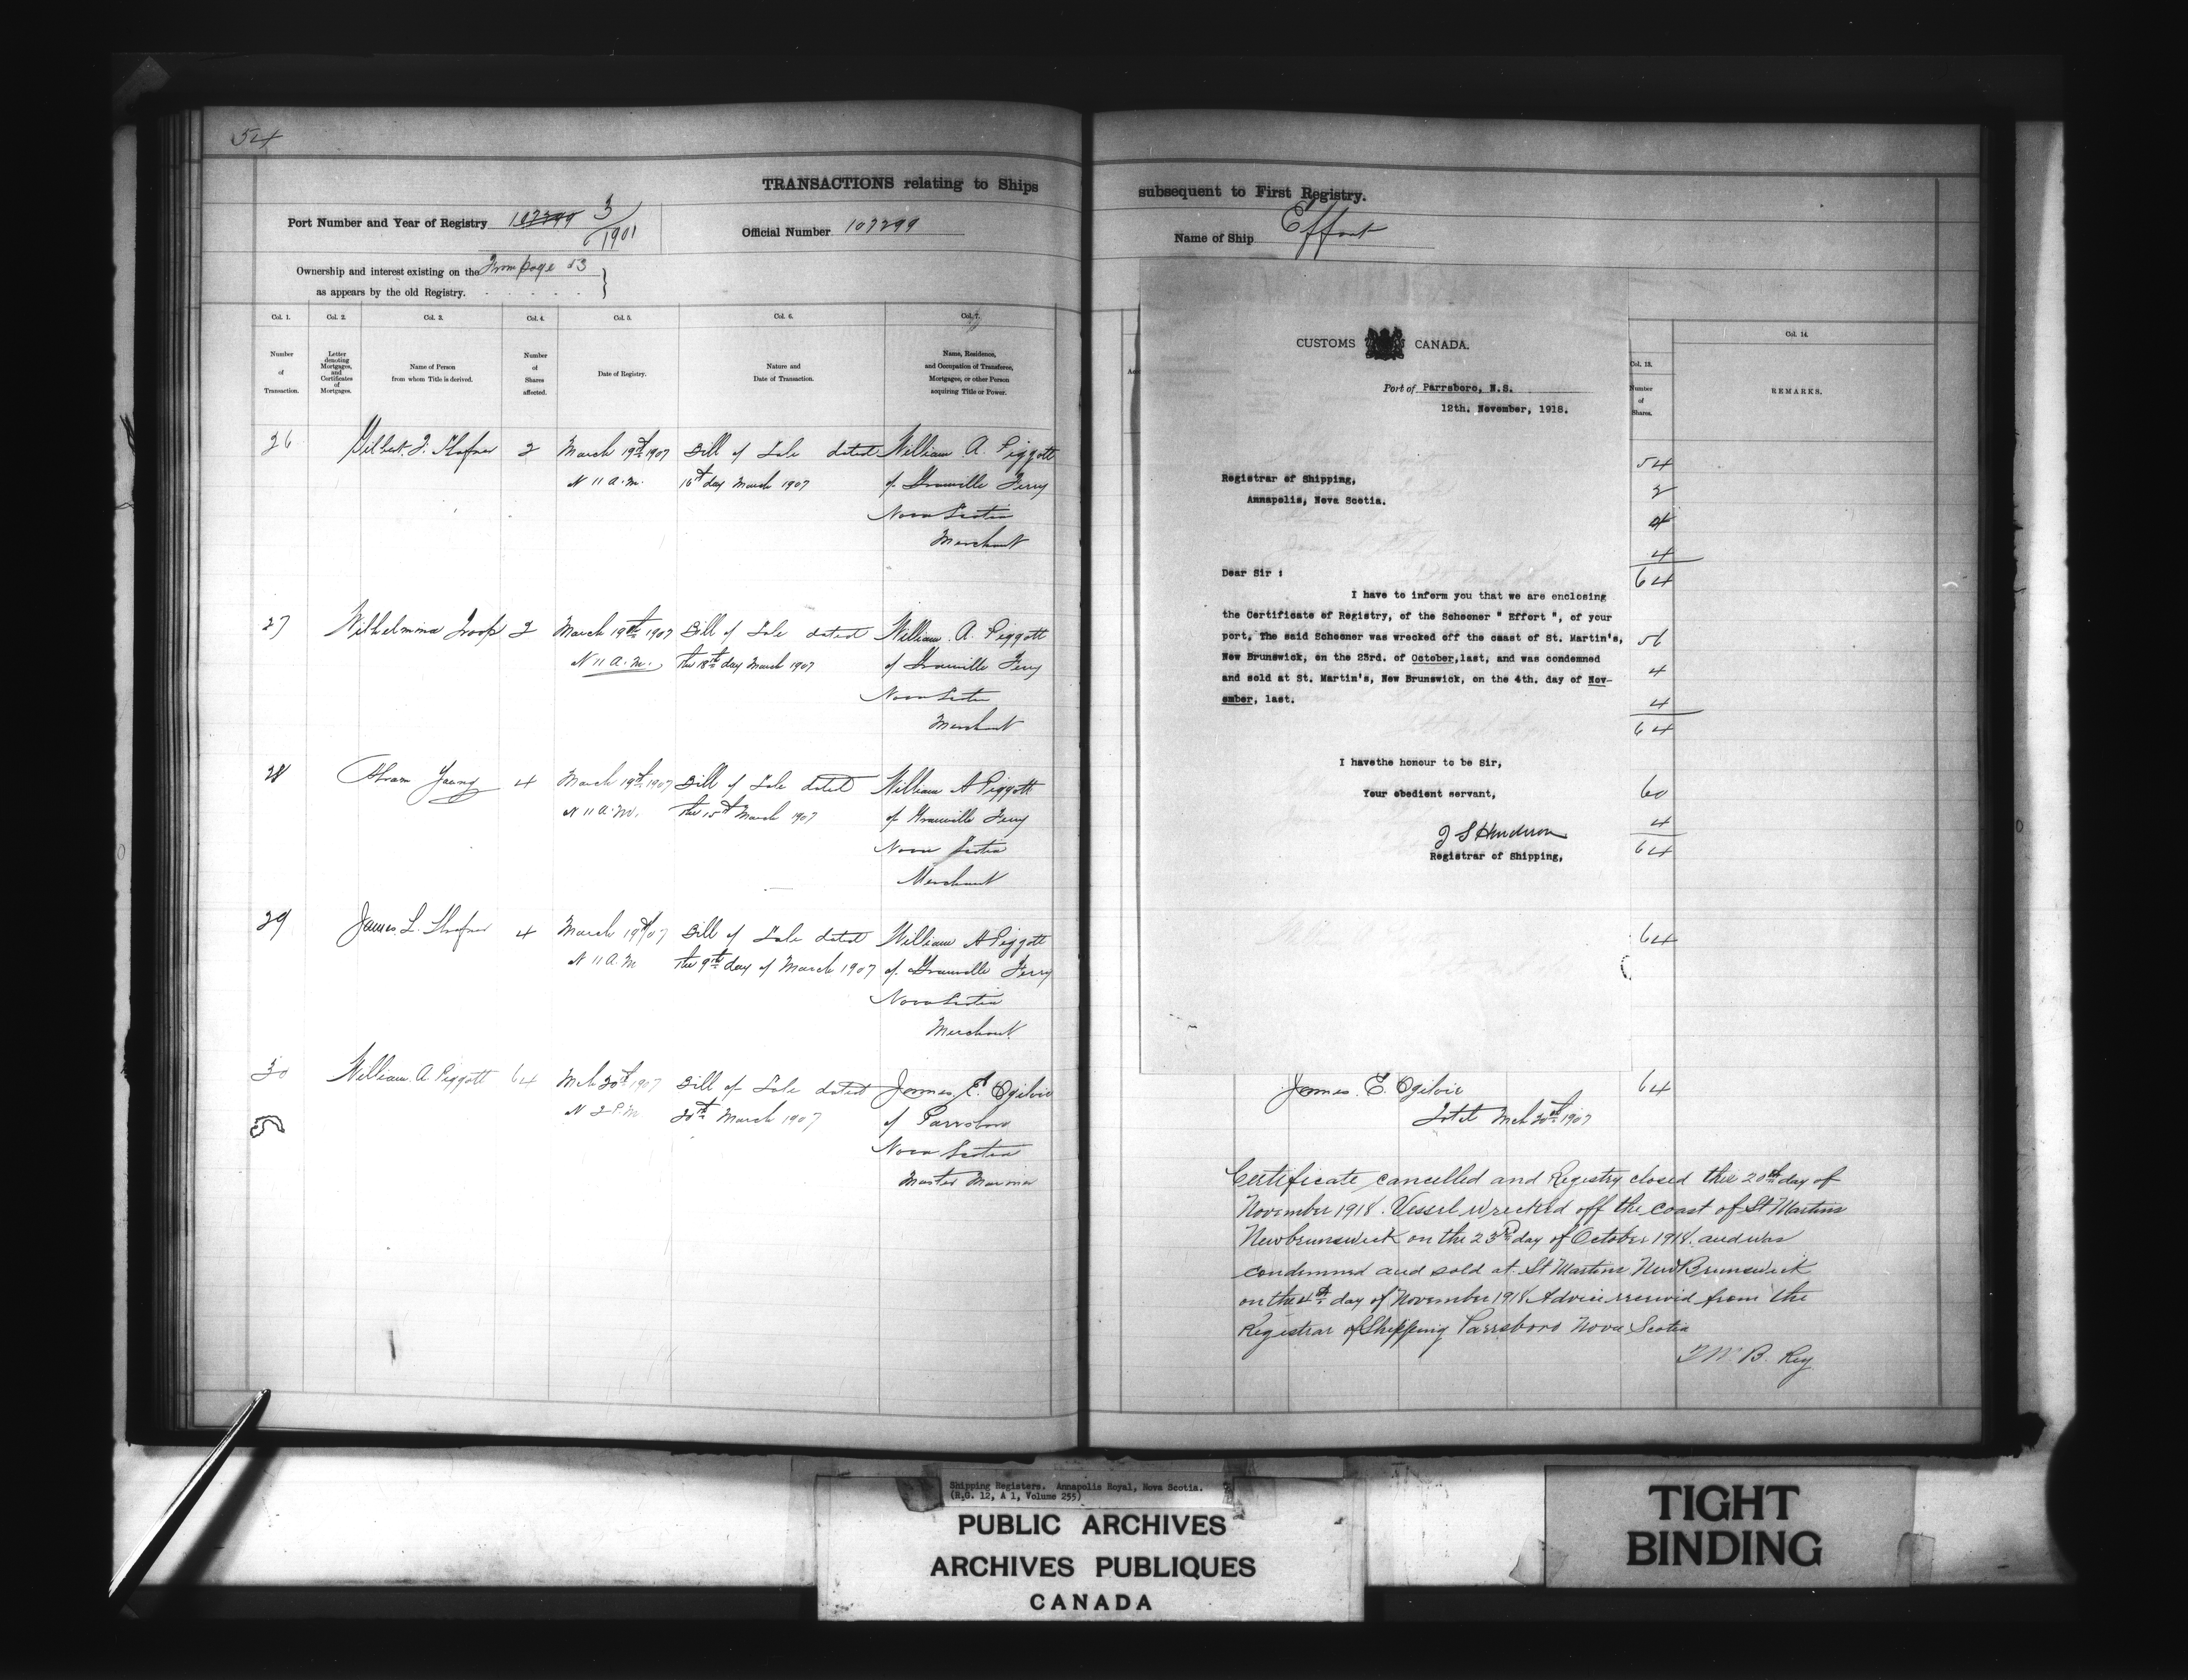 54
TRANSACTIONS relating to Ships
Port Number and Year of Registry 107299 3/1901
Official Number 107299
Ownership and interest existing on the From page 53
as appears by the old Registry.
Col. 1. Col. 2. Col. 3. Col. 4. Col. 5. Col. 6. Col. 7.
Number of Transaction.
Letter denoting Mortgages, and Certificates of Mortgages.
Name of Person from whom Title is derived.
Number of Shares affected.
Date of Registry.
Nature and Date of Transaction.
Name, Residence, and Occupation of Transferee, Mortgagee, or other Person acquiring Title or Power.
26 Gilbert 2 March 19th 1907 Bill of Sale dated William A. Piggott
N 11 A.M. 16th day March 1907 of Granville Ferry
Nova Scotia
Merchant
27 Wilhelmina Troop 2 March 19th 1907 Bill of Sale dated William A. Piggott
N 11 A.M. the 18th day March 1907 of Granville Ferry
Nova Scotia
Merchant
28 Abram Young 4 March 19th 1907 Bill of Sale dated William A Piggott
N 11 A.M. the 15th March 1907 of Granville Ferry
Nova Scotia
Merchant
29 James L. 4 March 19th 07 Bill of Sale dated William A Piggott
N 11 A.M the 9th day of March 1907 of Granville Ferry
Nova Scotia
Merchant.
30 William A. Piggott 64 Mch 20th 1907 Bill of Sale dated James E. Ogilvie
N 2 P.M 20th March 1907 of Parrsboro
Nova Scotia
Master Mariner
subsequent to First Registry.
Name of Ship Effort
Col. 13. Col. 14.
Number of Shares.
REMARKS.
CUSTOMS CANADA.
Port of Parrsboro, N.S.
12th. November, 1918.
Registrar of Shipping,
Annapolis, Nova Scotia.
Dear Sir :
I have to inform you that we are enclosing
the Certificate of Registry, of the Schooner " Effort ", of your
port, The said Schooner was wrecked off the coast of St. Martin's,
New Brunswick, on the 23rd. of October,last, and was condemned
and sold at St. Martin's, New Brunswick, on the 4th. day of Nov-
ember, last.
I havethe honour to be Sir,
Your obedient servant,
J S Henderson
Registrar of Shipping,
54
2
4
4
64
56
4
4
64
60
4
64
64
James E. Ogilvie 64
Mch 20th 1907
Certificate cancelled and Registry closed this 20th day of
November 1918. Vessel wrecked off the coast of St Martins
Newbrunswick on the 23rd day of October 1918. and was
condemned and sold at St Martins New Brunswick
on the 4th day of November 1918 Advice received from the
Registrar of Shipping Parrsboro Nova Scotia
B. Reg
Shipping Registers. Annapolis Royal, Nova Scotia.
(R.G. 12, A 1, Volume 255)
PUBLIC ARCHIVES
ARCHIVES PUBLIQUES
CANADA
TIGHT
BINDING